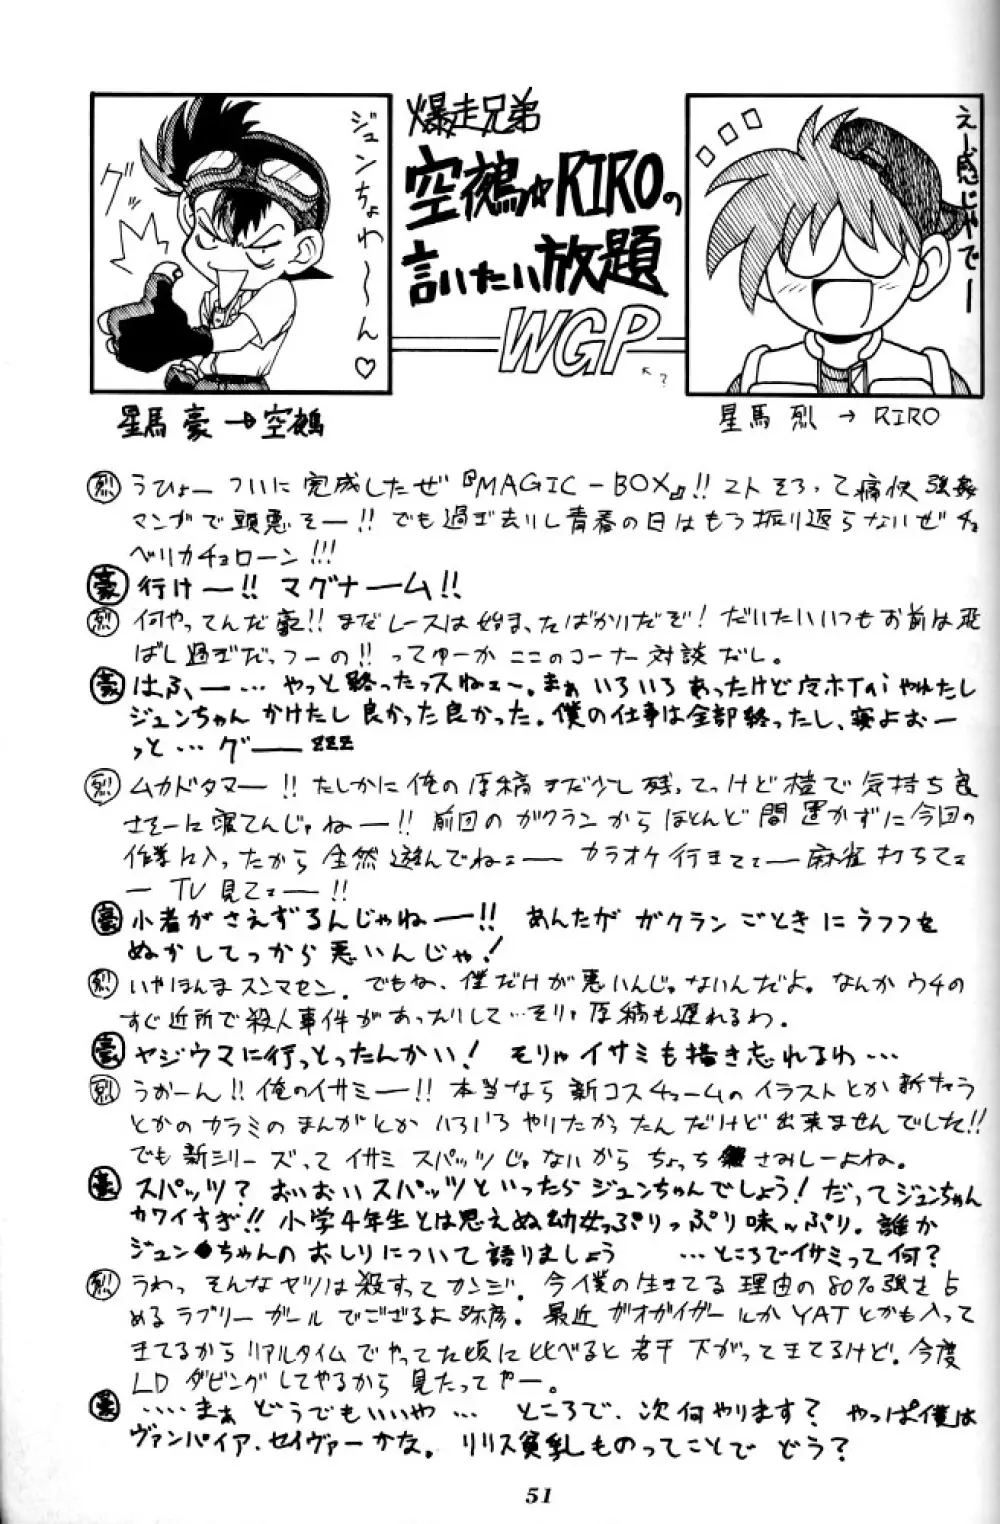 爆走兄弟
空鵺☆RIROの
言いたい放題
WGP
←？
ジュンちょわ～～ん♡
グッ
えー感じやでー
星馬 豪→空鵺
星馬 烈→RIRO
烈 うひょー ついに完成したぜ『MAGIC-BOX』!!
でも過ぎ去りし青春の日はもう振り返らないぜチョ
ベリカチョローン!!!
豪 行けー!! マグナーム!!
烈 何やってんだ豪!! まだレースは始まったばかりだぞ！だいたいいつもお前は飛
ばし過ぎだっつーの!! ってゆーかここのコーナー対談だし。
豪 はふぅー… やっと終ったっスねェー。まぁいろいろあったけど
良かった良かった。僕の仕事は全部終ったし、寝よおー
っと…グーzzz
烈 ムカドタマー!! たしかに俺の原稿まだ少し残ってっけど横で気持ち良
さそーに寝てんじゃねー!! 前回のガクランからほとんど間置かずに今回の
作業に入ったから全然遊んでねェー カラオケ行きてェー 麻雀打ちてェ
ー TV見てェー!!
豪 小者がさえずるんじゃねー!! あんたがガクランごときにうつつを
ぬかしてっから悪いんじゃ！
烈 いやほんまスンマセン。でもね、僕だけが悪いんじゃないんだよ。なんかウチの
すぐ近所で殺人事件があったりして…そりゃ原稿も遅れるわ。
豪 ヤジウマに行っとったんかい！ そりゃイサミも描き忘れるわ…
烈 うおーん!! 俺のイサミー!! 本当なら新コスチュームのイラストとか新キャラ
とかのカラミのまんがとかいろいろやりたかったんだけど出来ませんでした!!
でも新シリーズってイサミスパッツじゃないからちょっちさみしーよね。
…ところでイサミって何？
烈 うわっ そんなヤツは殺すってカンジ。今僕の生きてる理由の80%強を占
めるラブリーガールでござるよ弥彦。最近ガオガイガーとかYATとかも入って
きてるからリアルタイムでやってた頃に比べると若干下がってきてるけど。今度
LDダビングしてやるから見たってやー。
豪 ‥‥まぁどうでもいいや… ところで、次何やります？ やっぱ僕は
ヴァンパイア・セイヴァーかな。
51